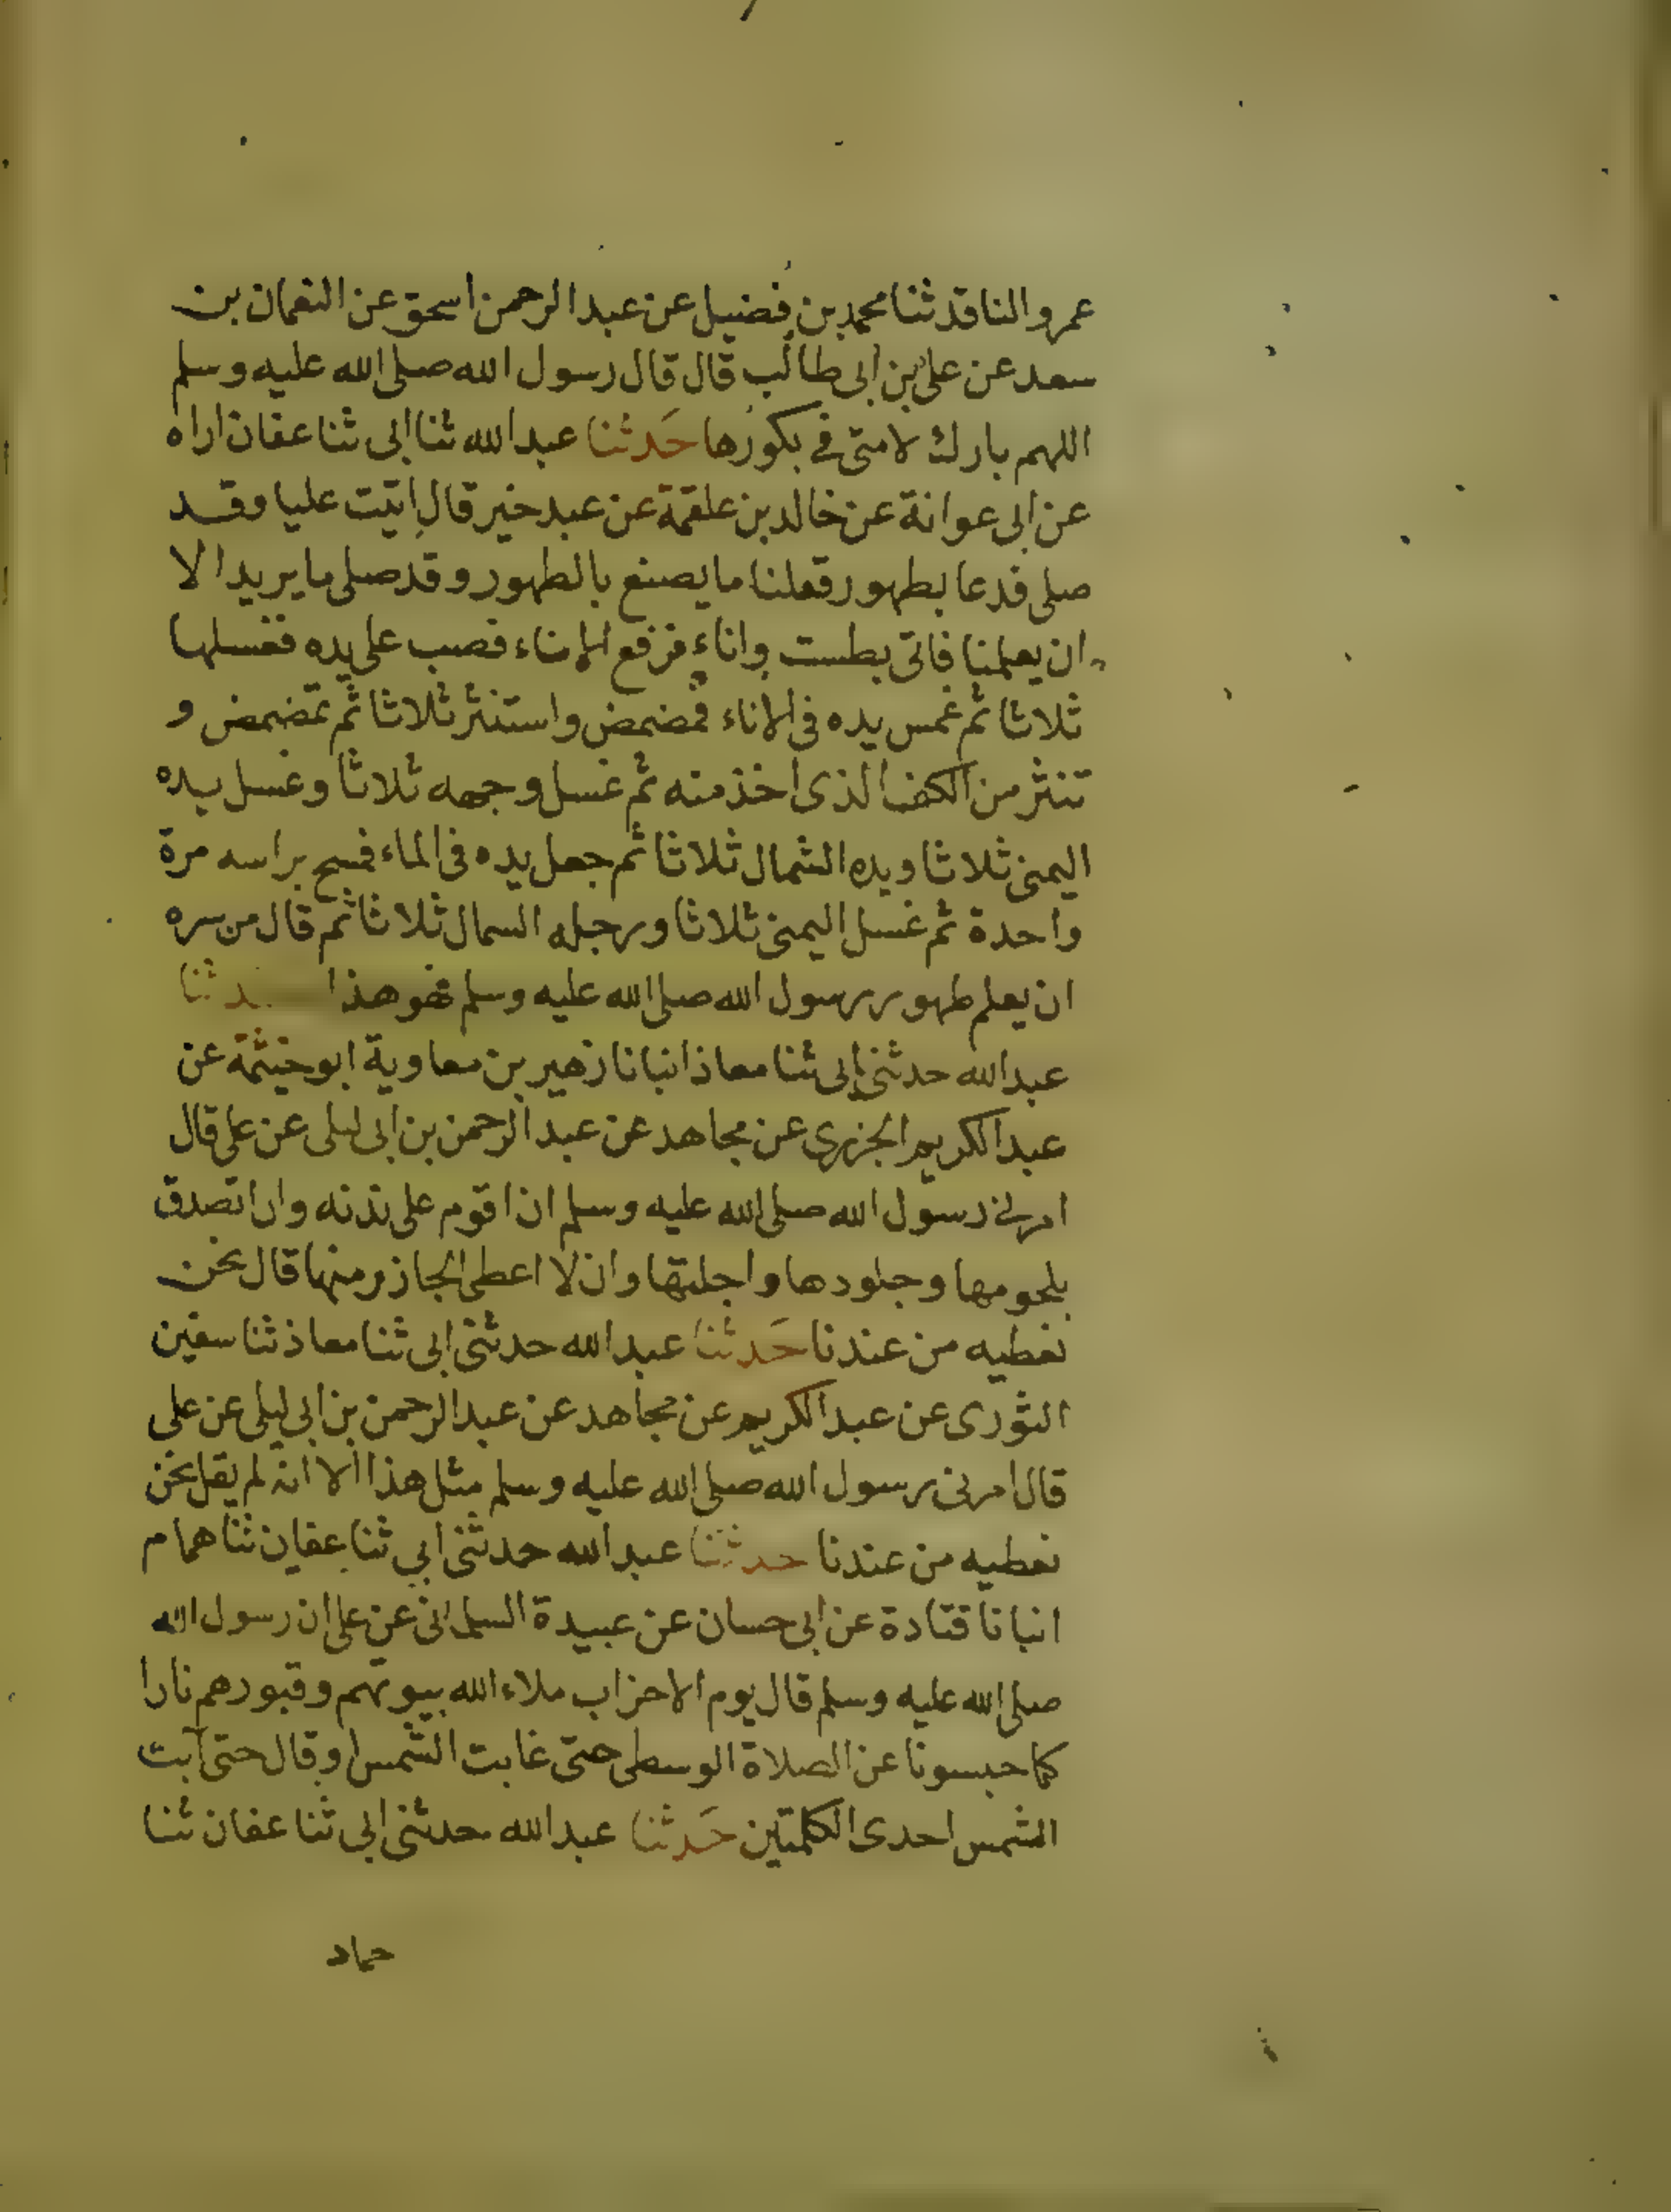 عمرو الناقد ثنا محمد بن فضيل عن عبد الرحمن اسحق عن النعمان بن
سعد عن علي بن ابى طالب قال قال رسول الله صلى الله عليه وسلم
اللهم بارك لامتى في بكورها حدثنا عبد الله ثنا ابى ثنا عفان اراه
عن ابى عوانة عن خالد بن علقمة عن عبد خير قال اتيت عليا وقد
صلى فدعا بطهور فقلنا ما يصنع بالطهور وقد صلى ما يريد الا
ان يعلمنا فاتى بطست واناء فرفع الاناء فصب على يده فغسلها
ثلاثا ثم غمس يده فى الاناء فمضمض واستنثر ثلاثا ثم تمضمض و
تنثر من الكف الذى اخذ منه ثم غسل وجهه ثلاثا وغسل يده
اليمنى ثلاثا ويده الشمال ثلاثا ثم جعل يده فى الماء فمسح براسه مرة
واحدة ثم غسل اليمنى ثلاثا ورجله السمال ثلاثا ثم قال من سره
ان يعلم طهور رسول الله صلى الله عليه وسلم فهو هذا حدثنا
عبد الله حدثنى ابى ثنا معاذ انبانا زهير بن معاوية ابو خيثمة عن
عبد الكريم الجزرى عن مجاهد عن عبد الرحمن بن ابى ليلى عن على قال
امرنى رسول الله صلى الله عليه وسلم ان اقوم على بدنه وان اتصدق
بلحومها وجلودها واجلتها وان لا اعطى الجازر منها قال نحن
نعطيه من عندنا حدثنا عبد الله حدثنى ابى ثنا معاذ ثنا سفين
الثورى عن عبد الكريم عن مجاهد عن عبد الرحمن بن ابى ليلى عن على
قال امرنى رسول الله صلى الله عليه وسلم مثل هذا الا انه لم يقل نحن
نعطيه من عندنا حدثنا عبد الله حدثنى ابي ثنا عفان ثنا همام
انبانا قتادة عن ابى حسان عن عبيدة السلمانى عن على ان رسول الله
صلى الله عليه وسلم قال يوم الاحزاب ملاء الله بيوتهم وقبورهم نارا
كما حبسونا عن الصلاة الوسطى حتى غابت الشمس او قال حتى آبت
الشمس احدى الكلمتين حدثنا عبد الله حدثنى ابى ثنا عفان ثنا
حماد